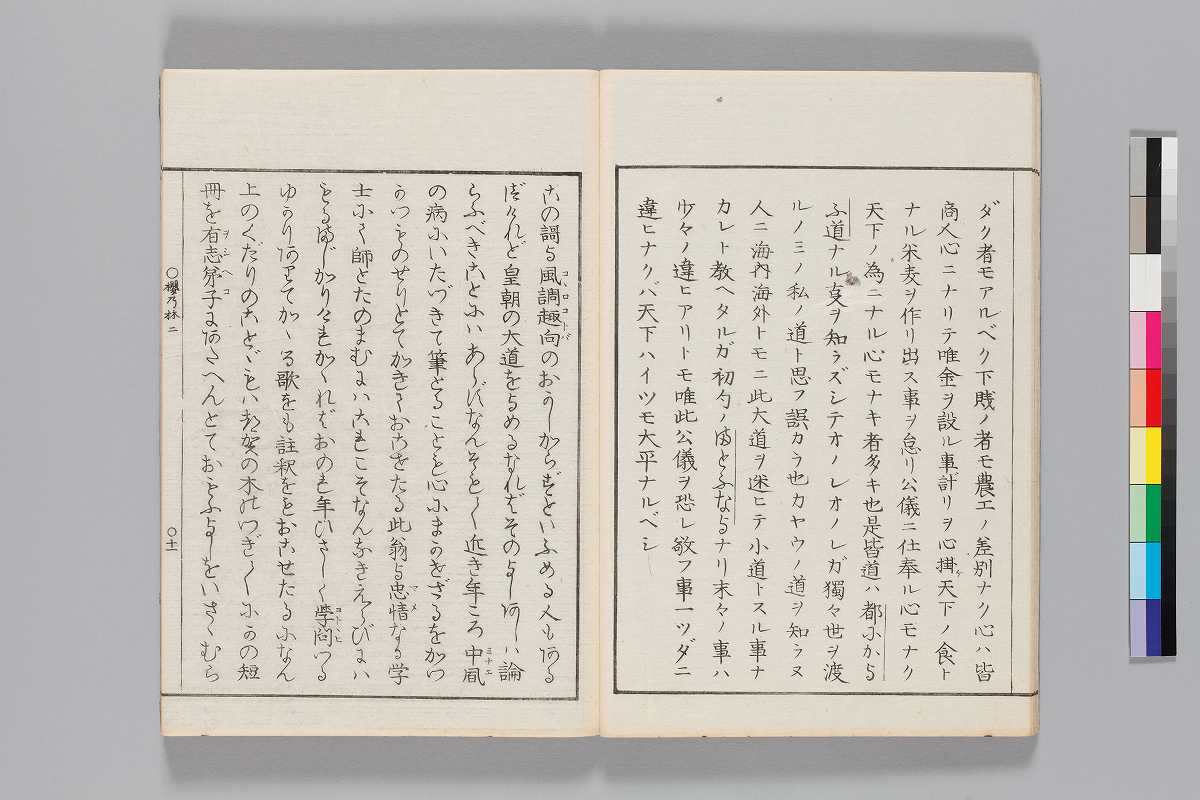 ダク者モアルベク下賤ノ者モ農工ノ差別ナク心ハ皆
商人心ニナリテ唯金ヲ設ル事計リヲ心掛ケ天下ノ食ト
ナル米麦ヲ作リ出ス事ヲ怠リ公儀ニ仕奉ル心モナク
天下ノ為ニナル心モナキ者多キ也是皆道ハ都にから
ふ道ナル叓ヲ知ラズシテオノレオノレガ獨々世ヲ渡
ルノミノ私ノ道ト思フ誤カラ也カヤウノ道ヲ知ラヌ
人ニ海内海外トモニ此大道ヲ迷ヒテ小道トスル事ナ
カレト教ヘタルガ初句ノまとふなよナリ末々ノ事ハ
少々ノ違ヒアリトモ唯此公儀ヲ恐レ敬フ事一ツダニ
違ヒナクバ天下ハイツモ大平ナルベシ
この謌よ風調趣向のおかしからずといふめる人もある
べけれど皇朝の大道をよめるなればそのよしあしハ論
らふべきことにハあらずなんそも〱近き年ころ中風
の病にいたづきて筆とることも心にまかせざるをかつ
かつものせりとてかき〱おこせたる此翁よ忠情なる学
士にて師とたのまむにハこれこそなんなきえらびにハ
もるまじかりけれかゝればおのれ年ひさしく学問つる
ゆかりありとてかゝる歌をも註釈をもおこせたるになん
上のくだりのことゞもハ志賀の木のつぎ〱にかの短
冊を有志弟子にあたへんとておもふよしをいさゝむら
○櫻乃林二
○十一